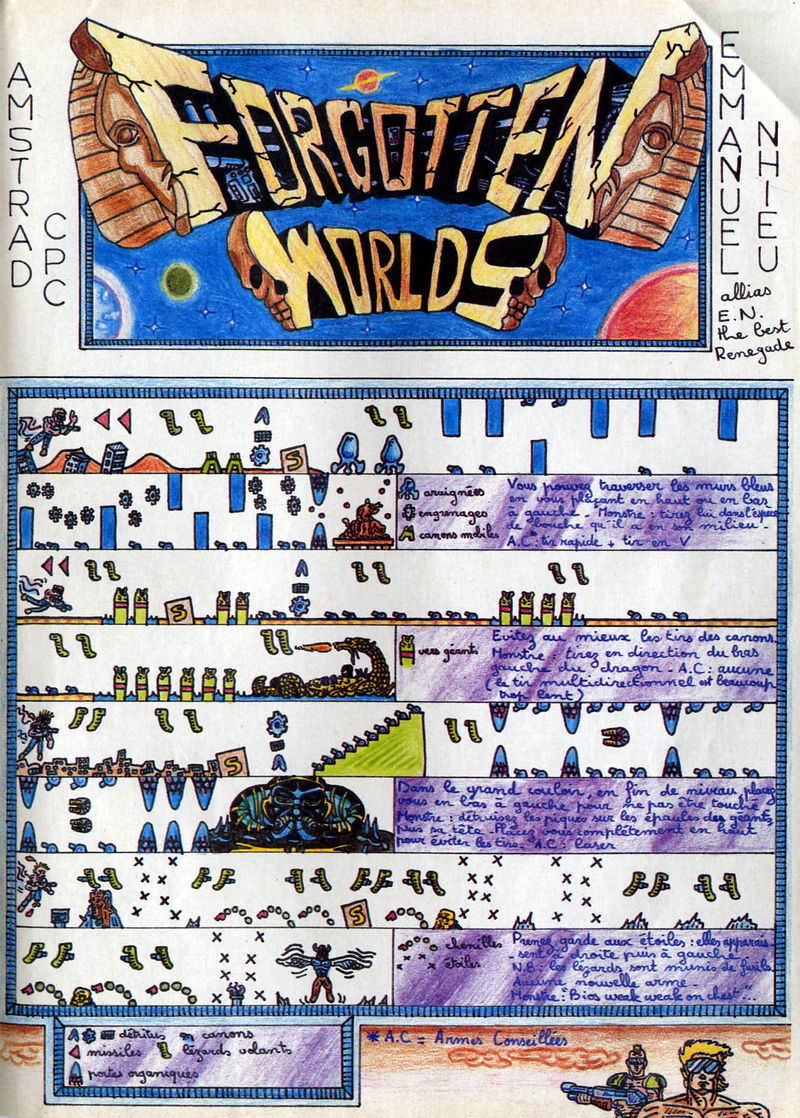 AMSTRAD
CPC
FORGOTTEN
WORLDS
EMMANUEL
NHIEU
allias
E.N.
the best
Renegade
S
araignées
engrenages
canons mobiles
Vous pouvez traverser les murs bleus
en vous plaçant en haut ou en bas
à gauche - Monstre : tirez lui dans l'espèce
de bouche qu'il a en son milieu -
A.C : tir rapide + tir en V
S
vers géants
Evitez au mieux les tirs des canons.
Monstre : tirez en direction du bas
gauche du dragon - A.C : aucune
(le tir multidirectionnel est beaucoup
trop lent)
S
Dans le grand couloir, en fin de niveau placez
vous en bas à gauche pour ne pas être touché
Monstre : détruisez les piques sur les épaules des géants,
puis sa tête. Placez vous complétement en haut
pour éviter les tirs - A.C : laser
S
chenilles
étoiles
Prenez garde aux étoiles : elles apparais-
-sent à droite puis à gauche.
N.B : les lézards sont munis de fusils.
Aucune nouvelle arme -
Monstre : "Bios weak weak on chest"...
détritus
canons
missiles
lézards volants
portes organiques
* A.C = Armes Conseillées